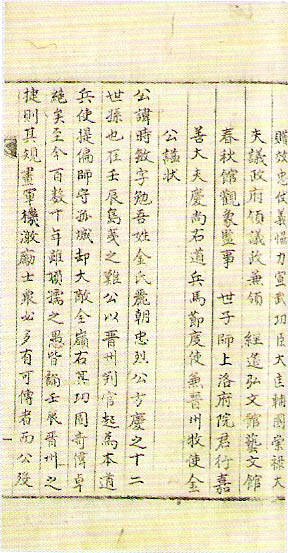 贈效忠仗義恊力宣武功臣大匡輔國崇祿大
夫議政府領議政兼領 經筵弘文館藝文館
春秋館觀象監事 世子師上洛府院君行嘉
善大夫慶尚右道兵馬節度使兼晉州牧使金
公謚狀
公諱時敏字勉吾姓金氏麗朝忠烈公方慶之十二
世孫也在壬辰島夷之難公以晋州判官起爲本道
兵使提偏師守孤城却大敵全嶺右其功固奇偉卓
絶矣至今百數十年雖孺之愚皆誦壬辰晋州之
捷則其規畫軍機激勵士衆必多有可傳者而公歿